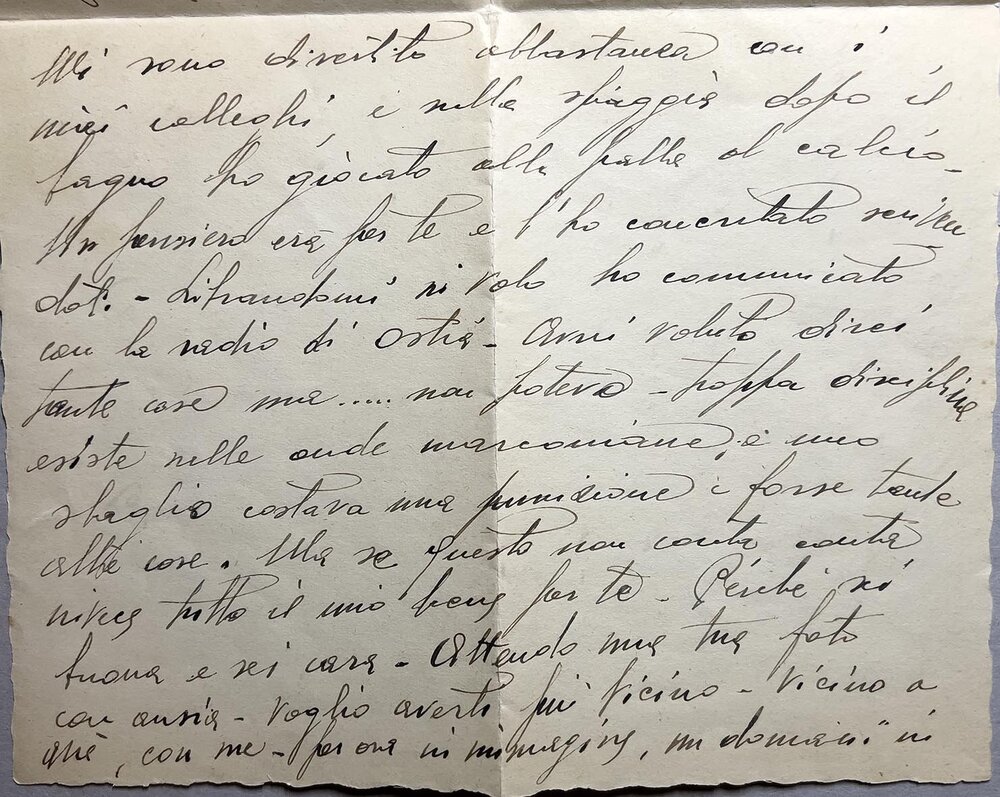 Mi sono divertito abbastanza con i
miei colleghi, e nella spiaggia dopo il
bagno ho giocato alla palla al calcio -
Un pensiero era per te e l'ho concretato scriven
doti. - Librandomi in volo ho comunicato
con la radio di Ostia - Avrei voluto dirci
tante cose ma ..... non potevo - troppa disciplina
esiste nelle onde marconiane, e uno
sbaglio costava una punizione e forse tante
altre cose. Ma se questo non conta conta
invece tutto il mio bene per te - Perché sei
buona e sei cara - Attendo una tua foto
con ansia - Voglio averti più vicino - vicino a
me, con me - per ora in immagine, un domani in